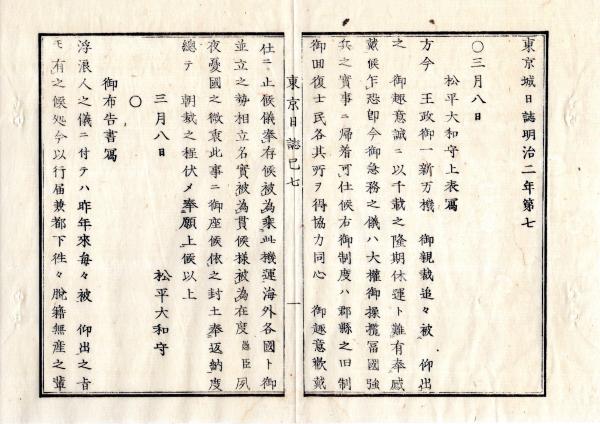 東京城日誌明治二年第七
〇三月八日
松平大和守上表写
方今 王政御一新万機 御親裁追々被 仰出
之 御趣意誠ニ以千載之隆期休運ト難有奉感
戴候乍恐即今御急務之儀ハ大權御操攬冨國強
兵之實事ニ帰着可仕候右御制度ハ郡縣之旧制
御回復士民各其所ヲ得協力同心 御趣意歓戴
東京日誌巳七
一
仕ニ止候儀奉存候被為乘此機運海外各國ト御
並立之勢相立名實被為貫候様被為在度愚臣夙
夜憂國之微衷此事ニ御座候依之封土奉返納度
總テ 朝裁之程伏〆奉願上候以上
三月八日 松平大和守
〇
御布告書寫
浮浪人之儀ニ付テハ昨年來毎々被 仰出之旨
モ有之候処今以行届兼都下徃々脱籍無産之輩